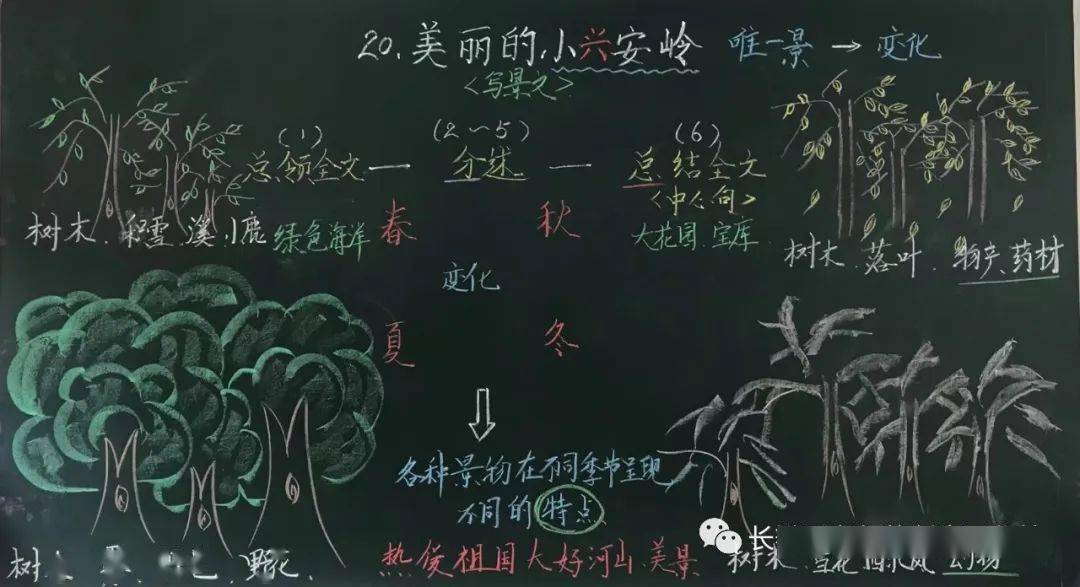 20.美丽的小兴安岭 唯一景→变化
<写景文>
(1) (2~5) (6)
总领全文—分述—总结全文
<中心句>
树木.积雪.溪.小鹿 绿色海洋 春 秋 大花园.宝库
树木.落叶.物产、药材
变化
夏 冬
各种景物在不同季节呈现
不同的特点
热爱祖国大好河山.美景
树 野花.
长
树木 雪花 西北风